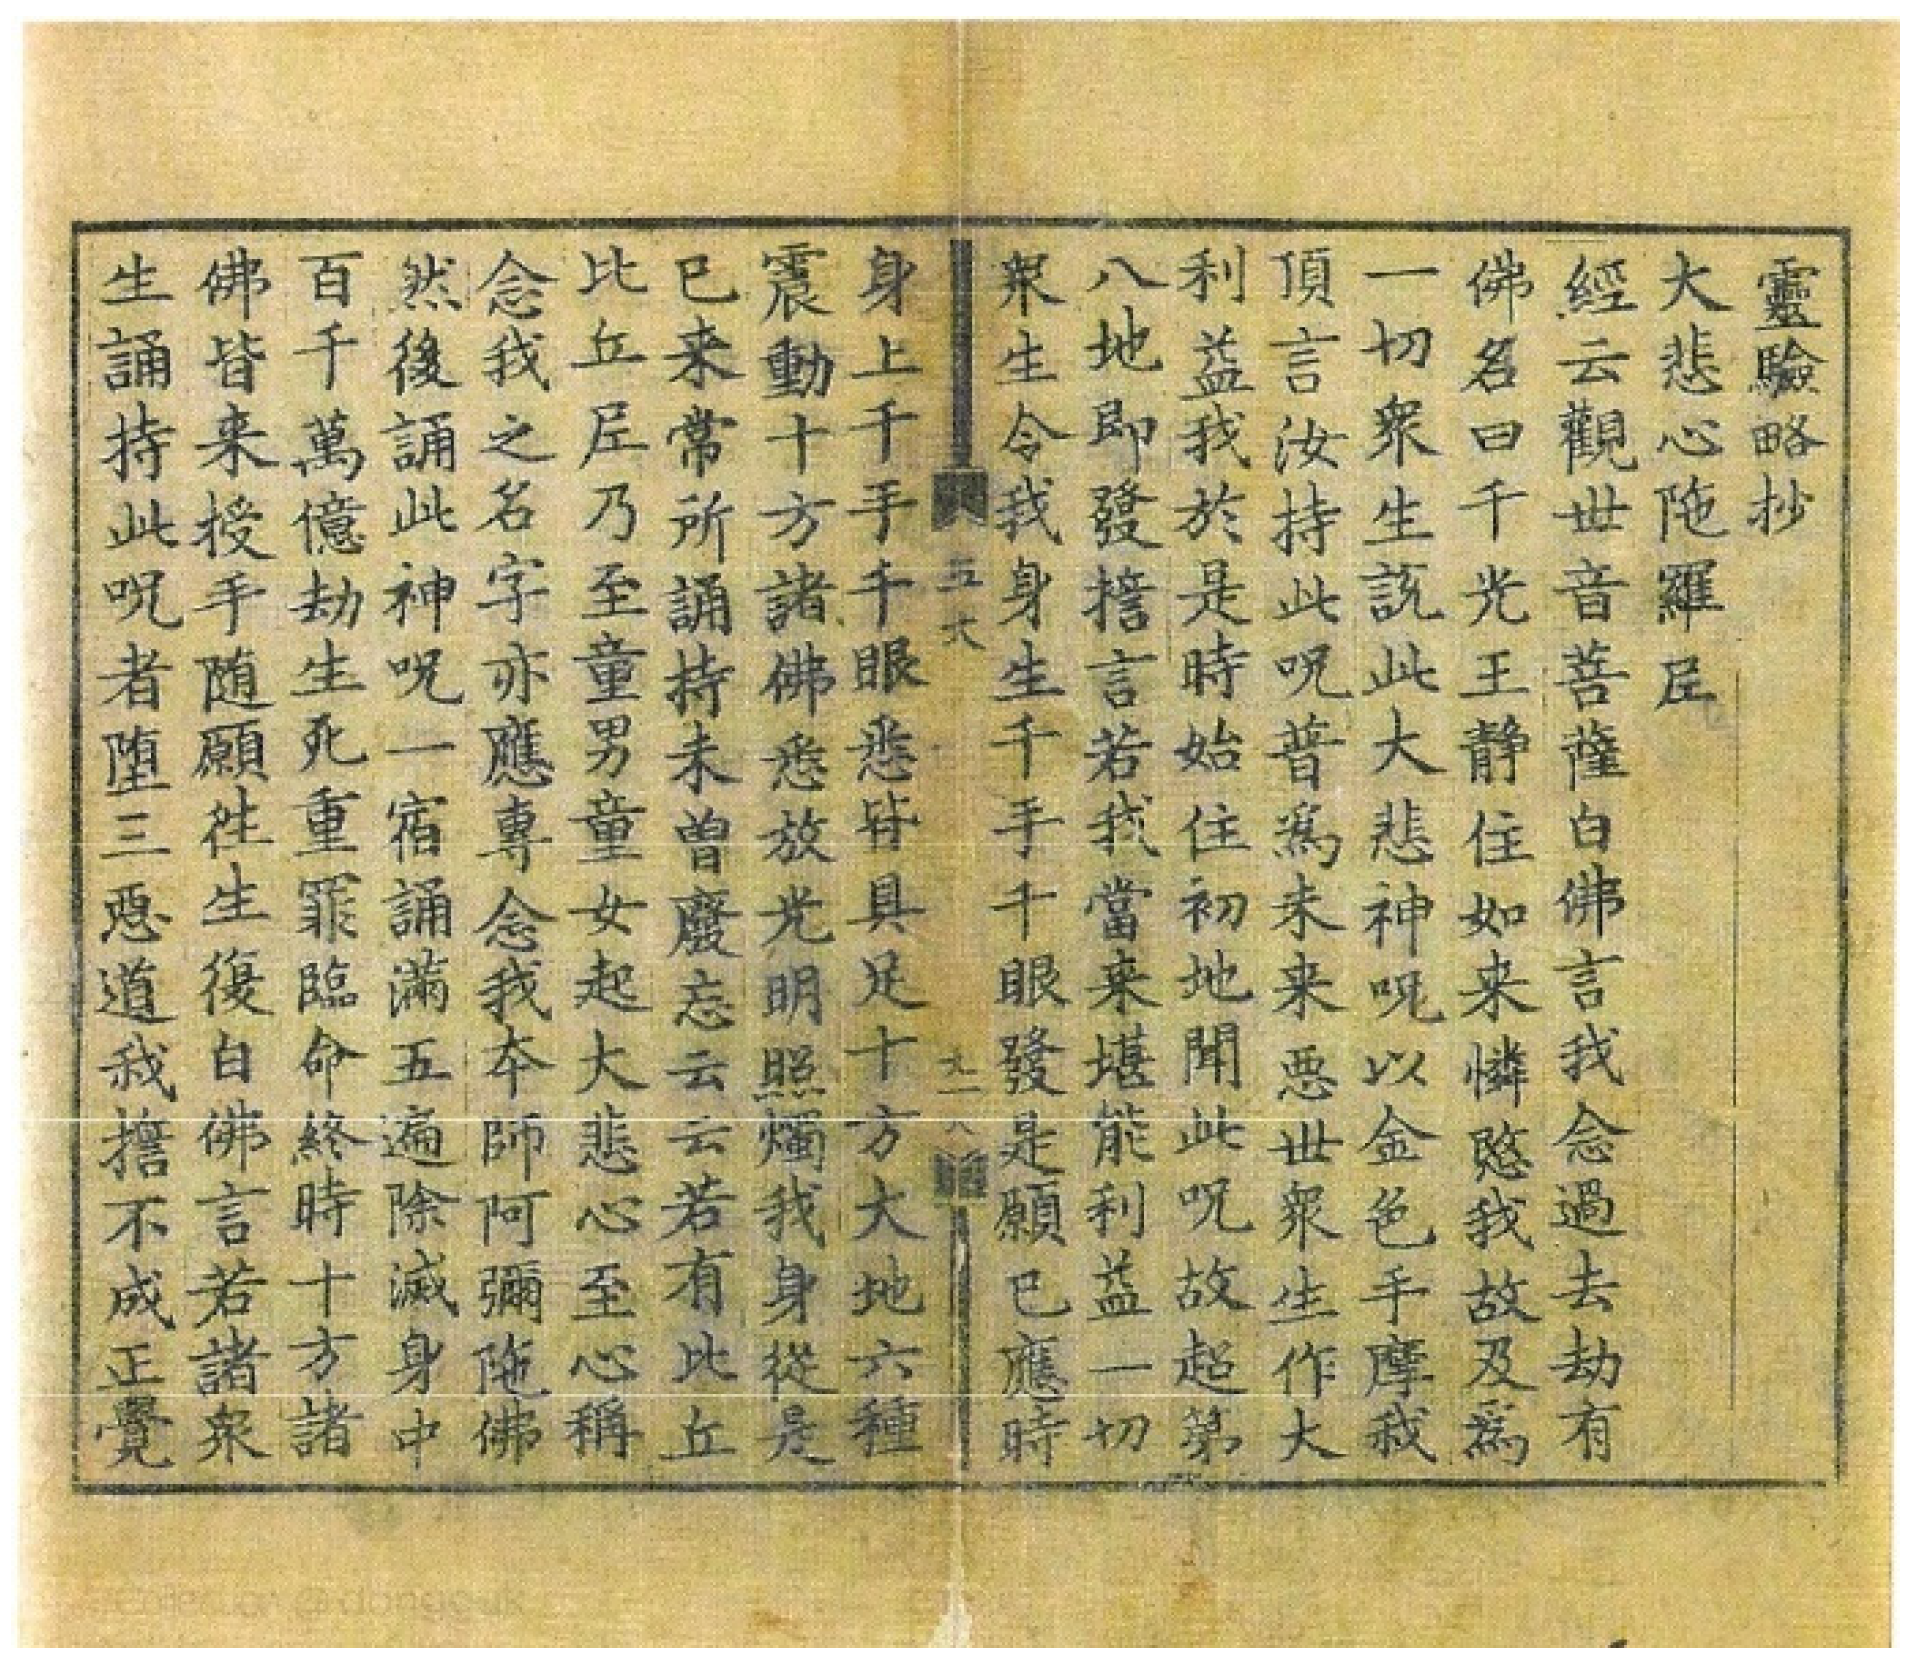 靈驗略抄
大悲心陁羅尼
經云觀世音菩薩白佛言我念過去劫有
佛名曰千光王靜住如来憐愍我故及爲
一切衆生說此大悲神呪以金色手摩我
頂言汝持此呪普爲未来惡世衆生作大
利益我於是時始住初地聞此呪故超第
八地即發擔言若我當来堪能利益一切
衆生令我身生千手千眼發是願已應時
五大
身上千手千眼悉皆具足十方大地六種
震動十方諸佛悉放光明照燭我身從是
已来常所誦持未曾廢忘云云若有比丘
比丘尼乃至童男童女起大悲心至心稱
念我之名字亦應專念我本師阿彌陁佛
然後誦此神呪一宿誦滿五遍除滅身中
百千萬億劫生死重罪臨命終時十方諸
佛皆来授手随願徃生復白佛言若諸衆
生誦持此呪者堕三惡道我擔不成正覺